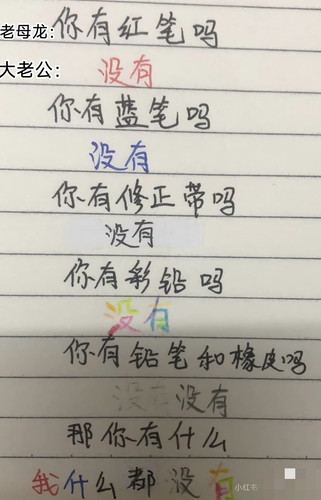 老母龙：你有红笔吗
大老公：没有
你有蓝笔吗
没有
你有修正带吗
没有
你有彩铅吗
没有
你有铅笔和橡皮吗
没有没有
那你有什么
我什么都没有
小红书